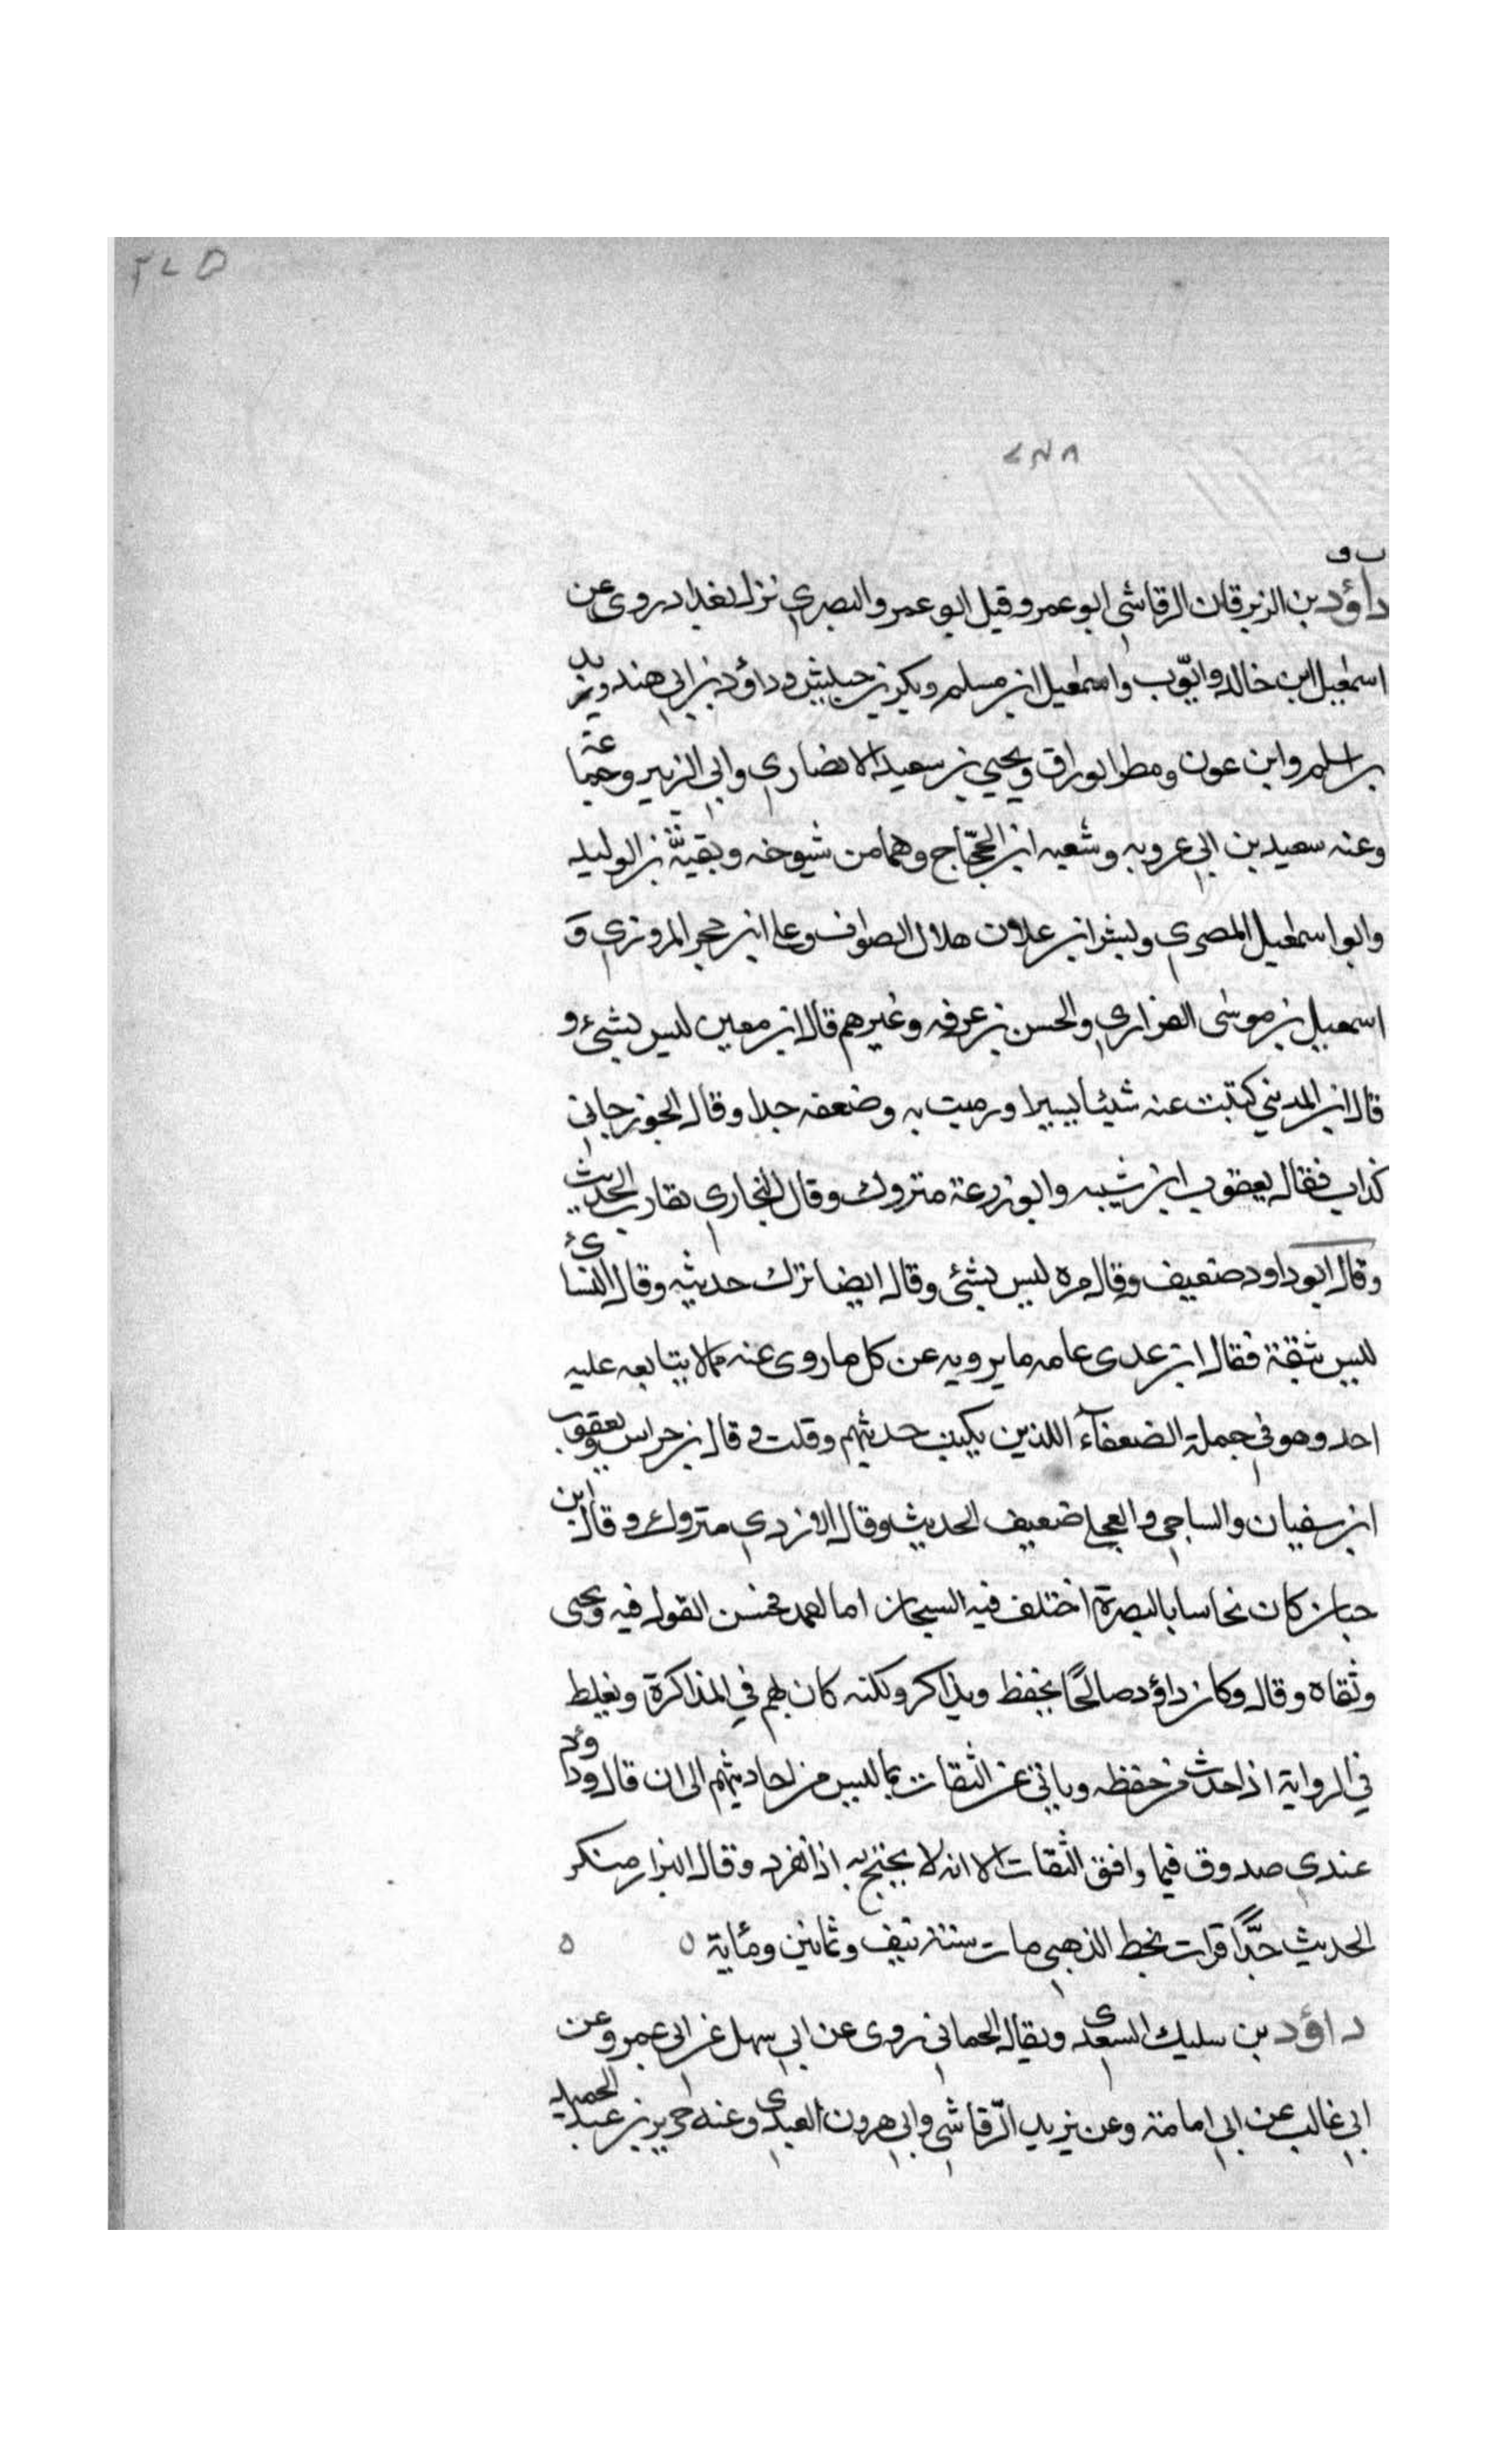 ت ق
داؤد بن الزبرقان الرقاشي ابو عمرو قيل ابو عمر والبصري نزل بغداد روى عن
اسمعيل ابن خالد وايوب واسمعيل ابن مسلم وبكر بن خيش وداؤد بن ابي هند وزيد
بن اسلم وابن عون ومطر الوراق ويحيي بن سعيد الانصاري وابي الزبير وجماعة
وعنه سعيد بن ابي عروبه وشعبه ابن الحجاج وهما من شيوخه وبقية بن الوليد
وابو اسمعيل المصري وبشر ابن هلال الصواف وعلى ابن حجر المروزي و
اسمعيل بن موسى الفزاري والحسن بن عرفه وغيرهم قال ابن معين ليس بشئ و
قال ابن المديني كتبت عنه شيئا يسيرا ورميت به وضعفه جدا وقال الجوزجاني
كذاب فقال يعقوب ابن شيبه وابو زرعة متروك وقال البخاري مقارب الحديث
وقال ابو داود ضعيف وقال مره ليس بشئ وقال ايضا ترك حديثه وقال النسائ
ليس بثقة فقال ابن عدى عامه ما يرويه عن كل ما روى عنه مما لا يتابعه عليه
احد وهو في جملة الضعفآء اللذين يكتب حديثهم وقلت وقال بن خراس ويعقوب
ابن سفيان والساجي والعجلي ضعيف الحديث وقال الازدي متروك وقال ابن
حبان كان نخاسا بالبصرة اختلف فيه الشيخان اما احمد فحسن القول فيه ويحيى
وثقاه وقال وكان داؤد صالحًا يحفظ ويذاكر ولكنه كان يهم في المذاكرة ويغلط
في الرواية اذا حدث من حفظه وياتي عن الثقات بما ليس من احاديثهم الى ان قال وداؤد
عندي صدوق فيما وافق الثقات الا انه لا يحتج به اذا نفرد وقال البزار منكر
الحديث جدًّا قرات بخط الذهبي مات سنة نيف وثمانين ومائة ٥ ٥
داؤد بن سليك السعدى ويقال الحماني روى عن ابي سهل عن ابي عمرو عن
ابي غالب عن ابي امامة وعن يزيد الرقاشي وابي هرون العبدى وعنه جرير بن عبد الحميد